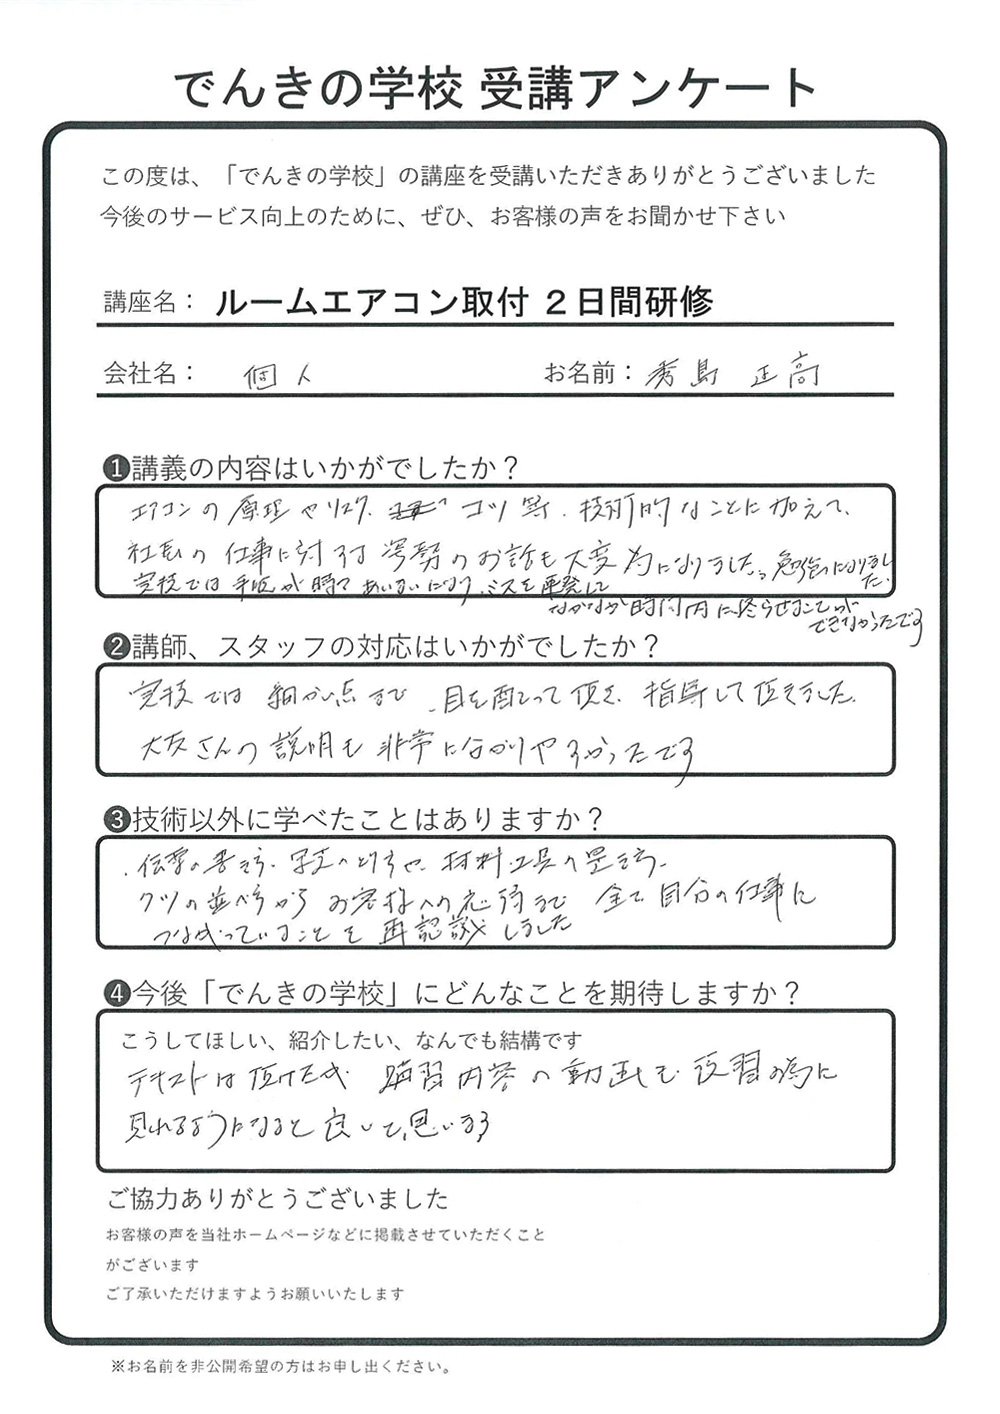 でんきの学校 受講アンケート
この度は、「でんきの学校」の講座を受講いただきありがとうございました
今後のサービス向上のために、ぜひ、お客様の声をお聞かせ下さい
講座名： ルームエアコン取付 2日間研修
会社名： 個人 お名前： 秀島 正高
❶講義の内容はいかがでしたか？
エアコンの原理やリスク、コツ等、技術的なことに加えて、
社長の仕事に対する姿勢のお話も大変為になりました。勉強になりました。
実技では手順が時々あいまいになり、ミスを重発して
なかなか時間内に終らせることが
できなかったです
❷講師、スタッフの対応はいかがでしたか？
実技では細かい点まで、目を配って頂き、指導して頂きました。
大友さんの説明も非常に分かりやすかったです
❸技術以外に学べたことはありますか？
・伝票の書き方、写真のとり方や、材料工具の置き方、
クツの並べ方からお客様への応待まで 全て自分の仕事に
つながっていることを再認識しました
❹今後「でんきの学校」にどんなことを期待しますか？
こうしてほしい、紹介したい、なんでも結構です
テキストは頂けたが 講習内容の動画も復習の為に
見れるようになると良いと思います
ご協力ありがとうございました
お客様の声を当社ホームページなどに掲載させていただくこと
がございます
ご了承いただけますようお願いいたします
※お名前を非公開希望の方はお申し出ください。